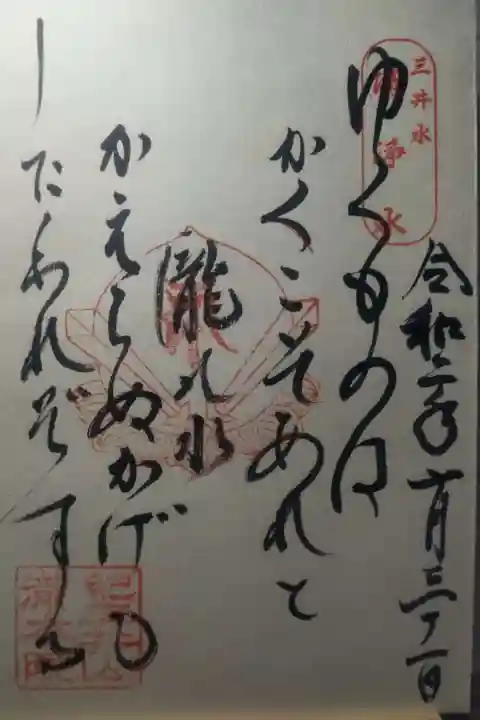 三井水
清浄水
令和二年十月三十一日
ゆくものは
かくこそあれと
瀧の水
かえらぬかげ
したわれぞする